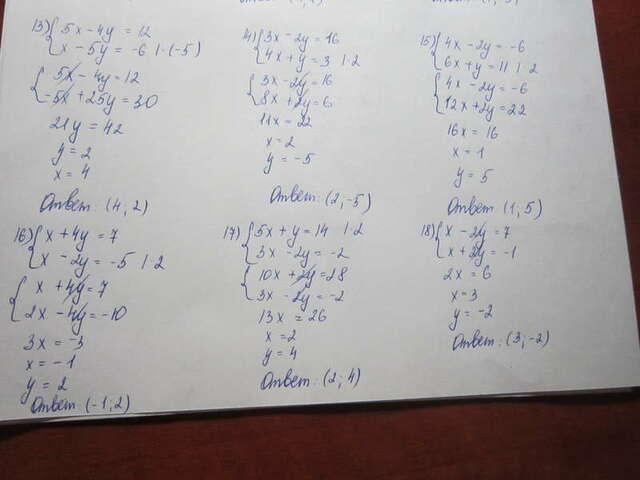 13) { 5x - 4y = 12
x - 5y = -6 | · (-5)
{ 5x - 4y = 12
-5x + 25y = 30
21y = 42
y = 2
x = 4
Ответ: (4, 2)
4) { 3x - 2y = 16
4x + y = 3 | · 2
{ 3x - 2y = 16
8x + 2y = 6
11x = 22
x = 2
y = -5
Ответ: (2; -5)
15) { 4x - 2y = -6
6x + y = 11 | · 2
{ 4x - 2y = -6
12x + 2y = 22
16x = 16
x = 1
y = 5
Ответ: (1, 5)
16) { x + 4y = 7
x - 2y = -5 | · 2
{ x + 4y = 7
2x - 4y = -10
3x = -3
x = -1
y = 2
Ответ: (-1; 2)
17) { 5x + y = 14 | · 2
3x - 2y = -2
{ 10x + 2y = 28
3x - 2y = -2
13x = 26
x = 2
y = 4
Ответ: (2; 4)
18) { x - 2y = 7
x + 2y = -1
2x = 6
x = 3
y = -2
Ответ: (3; -2)